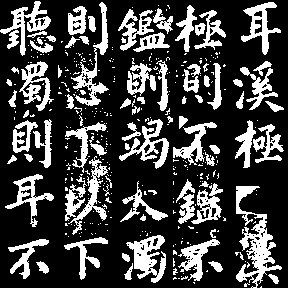 耳溪極谿
極則不鑑不
鑑則竭太濁
則志下以下
聽濁則耳不